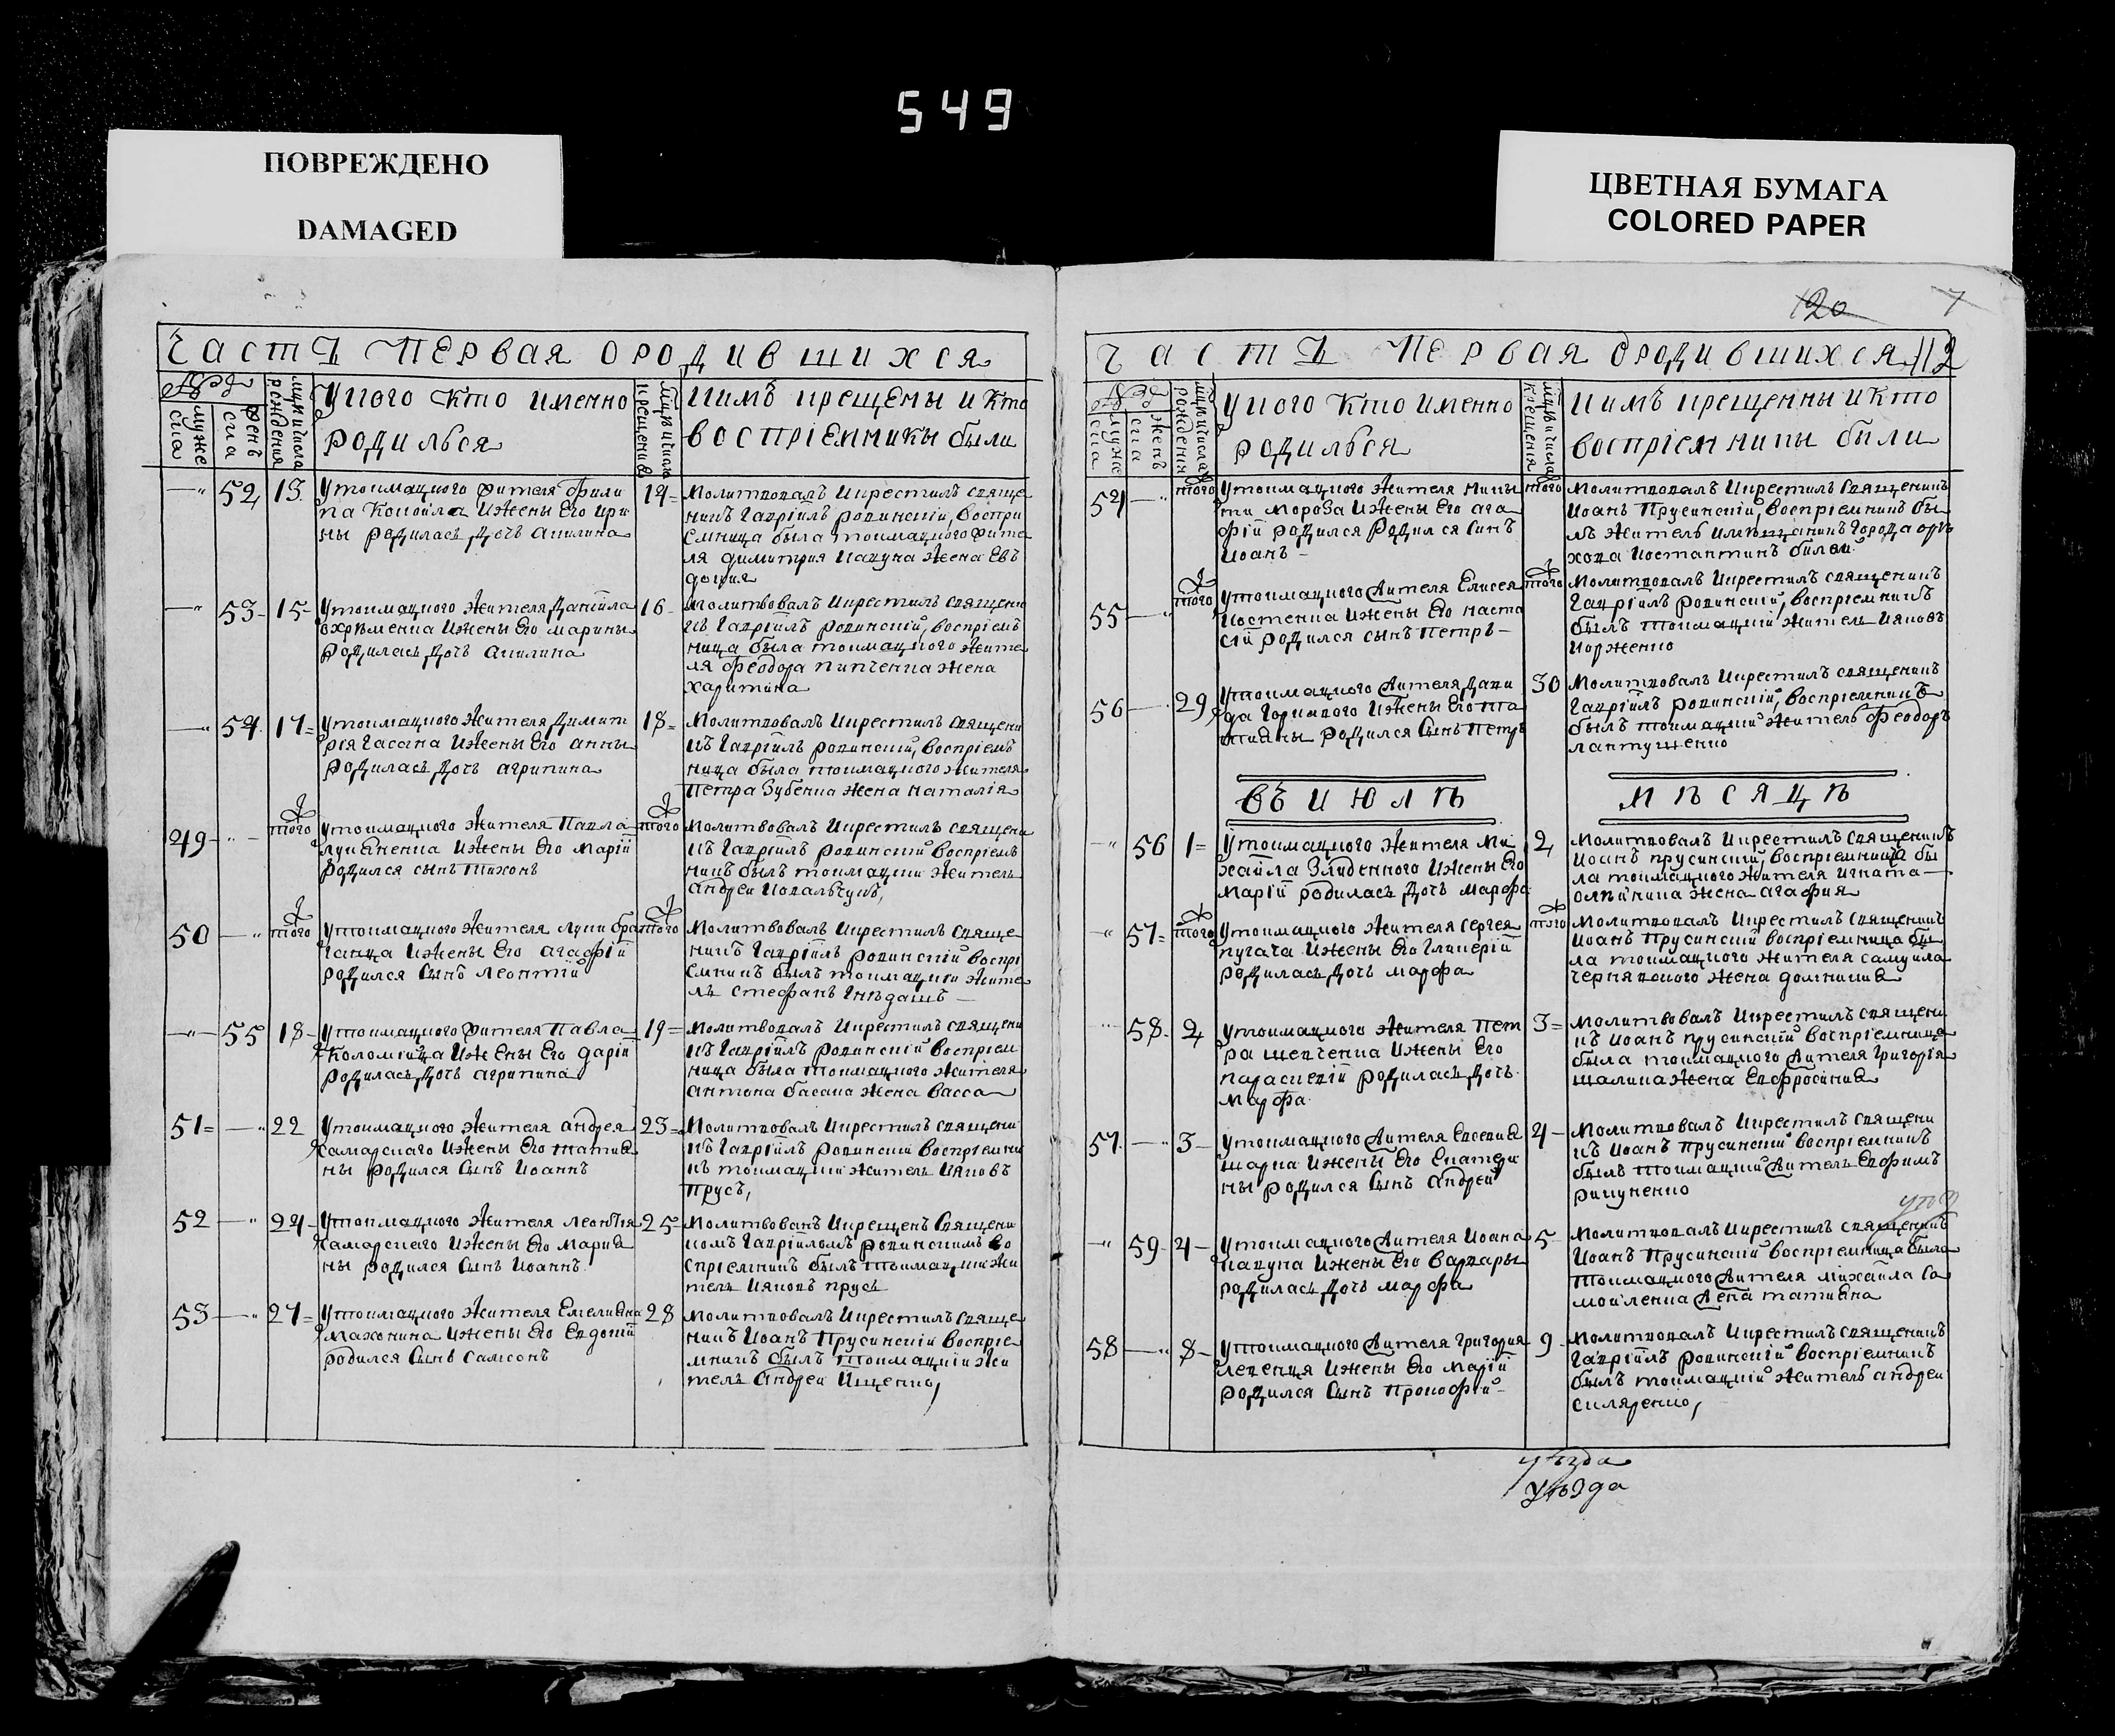 549
ПОВРЕЖДЕНО
DAMAGED
ЦВЕТНАЯ БУМАГА
COLORED PAPER
120
7
Часть Первая о родившихся
муже
ска
женъ
ска
рожденія
У кого кто именно
родился
крещенія
кимъ крещены и кто
воспріемники были
— 52 13
У токмацкого жителя Фили
па и жены его Ири
ны родилась дочь Акилина
14
Молитвовалъ и крестилъ священ
никъ Гавріилъ Ровинскій, воспрі
емница была токмацкого жите
ля Димитрія Кацуна жена Ев
докия
— 53 15
У токмацкого жителя Даніила
и жены его Марины
родилась дочь Акилина
16
Молитвовалъ и крестилъ священни
къ Гавріилъ Ровинскій, воспріем
ница была токмацкого жите
ля Феодора Пипченка жена
Харитина
— 54 17
У токмацкого жителя Димит
рія Гасана и жены его Анны
родилась дочь Агрипина
18
Молитвовалъ и крестилъ священни
къ Гавріилъ Ровинскій, воспріем
ница была токмацкого жителя
Петра Зубенка жена Наталія
49 — того
У токмацкого жителя Павла
Лукяненка и жены его Маріи
родился сынъ Тихонъ
того
Молитвовалъ и крестилъ священни
къ Гавріилъ Ровинскій воспріем
никъ былъ токмацкій житель
Андрей Ковальчукъ,
50 — того
У токмацкого жителя Луки Бра
ганца и жены его Агафіи
родился сынъ Леонтій
того
Молитвовалъ и крестилъ священ
никъ Гавріилъ Ровинскій воспрі
емникъ былъ токмацкій жите
ль Стефанъ Гнедашъ
— 55 18
У токмацкого жителя Павла
Коломійца и жены его Даріи
родилась дочь Агрипина
19
Молитвовалъ и крестилъ священни
къ Гавріилъ Ровинскій воспріем
ница была токмацкого жителя
Антона Басана жена Васса
51 — 22
У токмацкого жителя Андрея
Самарского и жены его Татия
ны родился сынъ Иоаннъ
23
Молитвовалъ и крестилъ священни
къ Гавріилъ Ровинскій воспріемни
къ токмацкій житель Ияковъ
Прусъ,
52 — 24
У токмацкого жителя Леонтія
Самарского и жены его Мария
ны родился сынъ Иоаннъ
25
Молитвованъ и крещенъ священни
комъ Гавріиломъ Ровинскимъ во
спріемникъ былъ токмацкій жи
тель Ияковъ Прусъ
53 — 27
У токмацкого жителя Емелияна
Махонина и жены его Евдокіи
родился сынъ Самсонъ
28
Молитвовалъ и крестилъ священ
никъ Иоанъ Прусинскій воспріе
мникъ былъ токмацкій жи
тель Андрей Ищенко,
Часть Первая о родившихся 112
муже
ска
женъ
ска
рожденія
У кого кто именно
родился
крещенія
кимъ крещенны и кто
воспріемники были
54 — того
У токмацкого жителя Ники
ти Мороза и жены его Ага
фіи родился родился синъ
Иоанъ
того
Молитвовалъ и крестилъ священникъ
Иоанъ Прусинскій, воспріемникъ бы
лъ житель города Оре
хова Костантинъ
55 — того
У токмацкого жителя Елисея
Костенка и жены его Наста
сіи родился сынъ Петръ
того
Молитвовалъ и крестилъ священникъ
Гавріилъ Ровинскій, воспріемникъ
былъ токмацкій житель Ияковъ
Корженко
56 — 29
У токмацкого жителя Дави
да и жены его Та
тияны родился сынъ Петръ
30
Молитвовалъ и крестилъ священникъ
Гавріилъ Ровинскій, воспріемникъ
былъ токмацкій житель Феодоръ
Лантушенко
Въ Июлѣ
Мѣсяцѣ
— 56 1
У токмацкого жителя Ми
хаила Злиденного и жены его
Маріи родилась дочь Марфа
2
Молитвовалъ и крестилъ священникъ
Иоанъ Прусинскій, воспріемница бы
ла токмацкого жителя Игната
Олейника жена Агафия
— 57 того
У токмацкого жителя Сергея
Пугача и жены его Гликеріи
родилась дочь Марфа
того
Молитвовалъ и крестилъ священникъ
Иоанъ Прусинскій воспріемница бы
ла токмацкого жителя Самуила
Чернявского жена Домникия
58 2
У токмацкого жителя Пет
ра Шевченка и жены его
Параскевіи родилась дочь
Марфа
3
Молитвовалъ и крестилъ священни
къ Иоанъ Прусинскій воспріемница
была токмацкого жителя Григорія
Шалика жена Евфросиния
57 — 3
У токмацкого жителя Евсевия
и жены его Екатери
ны родился сынъ Андрей
4
Молитвовалъ и крестилъ священни
къ Иоанъ Прусинскій воспріемникъ
былъ токмацкій житель Ефимъ
— 59 4
У токмацкого жителя Иоана
Кацуна и жены его Варвары
родилась дочь Марфа
5
Молитвовалъ и крестилъ священникъ
Иоанъ Прусинскій воспріемница была
токмацкого жителя Михаила Са
мойленка жена Татияна
58 — 8
У токмацкого жителя Григория
и жены его Маріи
родился сынъ Прокофій
9
Молитвовалъ и крестилъ священникъ
Гавріилъ Ровинскій воспріемникъ
былъ токмацкій житель Андрей
Скляренко,
уѣзда
уѣзда